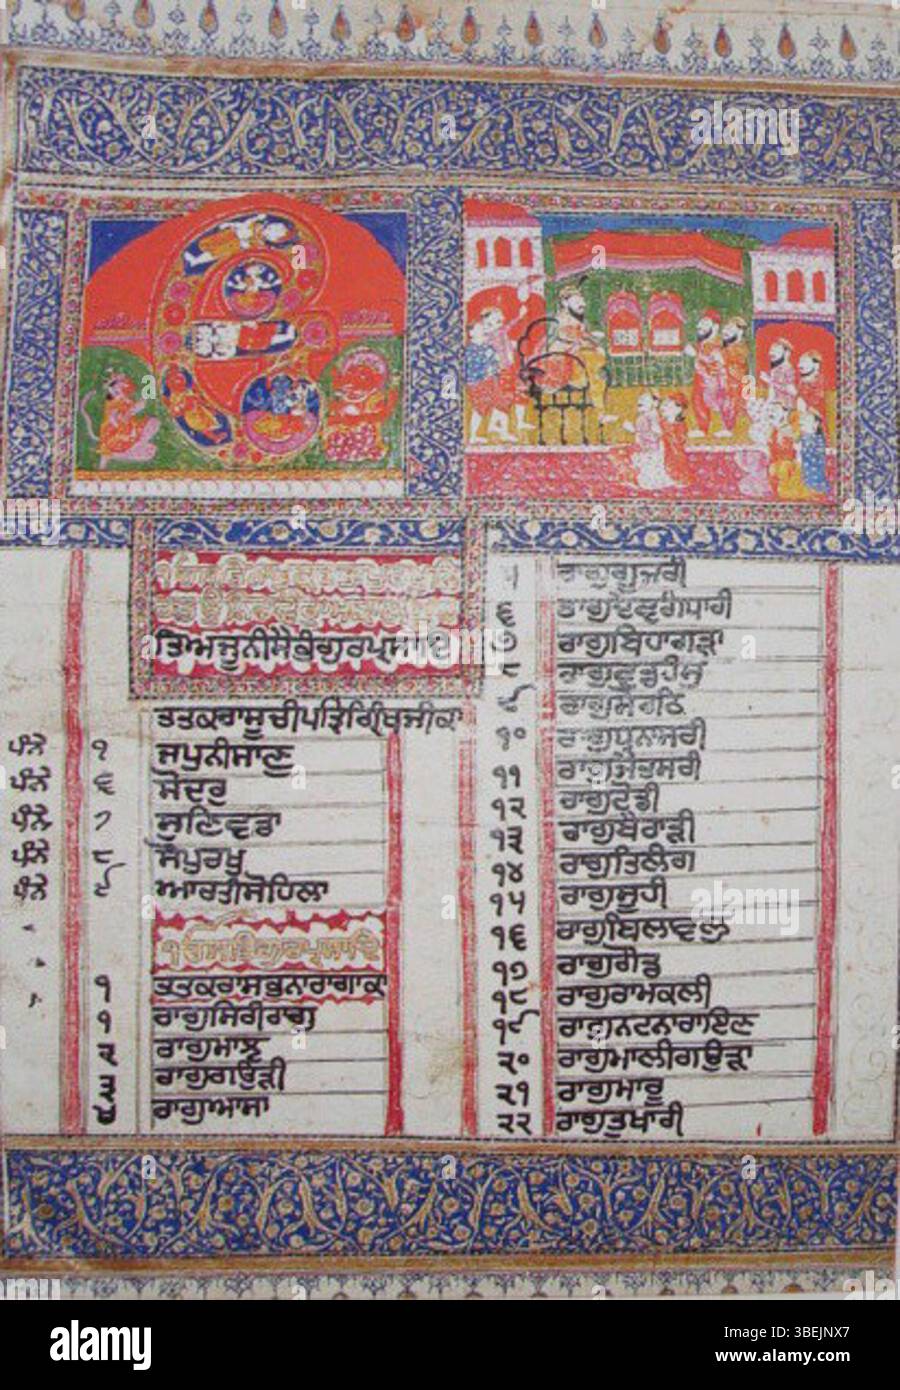 ਤਤਕਰਾਸੂਚੀਪਤ੍ਰਿ
ਪੰਨੇ ੧ ਜਪੁਨੀਸਾਣੁ
ਪੰਨੇ ੬ ਸੋਦਰੁ
ਪੰਨੇ ੭ ਸੁਣਿਵਡਾ
ਪੰਨੇ ੮ ਸੋਪੁਰਖੁ
ਪੰਨੇ ੯ ਆਰਤੀਸੋਹਿਲਾ
੧ਓਸਤਿਗੁਰਪ੍ਰਸਾਦਿ
੧ ਤਤਕਰਾਸਬਨਾਰਾਗਾਕਾ
੧ ਰਾਗੁਸਿਰੀਰਾਗੁ
੨ ਰਾਗੁਮਾਝ
੩ ਰਾਗੁਗਉੜੀ
੪ ਰਾਗੁਆਸਾ
੫ ਰਾਗੁਗੂਜਰੀ
੬ ਰਾਗੁਦੇਵਗੰਧਾਰੀ
੭ ਰਾਗੁਬਿਹਾਗੜਾ
੮ ਰਾਗੁਵਡਹੰਸੁ
੯ ਰਾਗੁਸੋਰਠਿ
੧੦ ਰਾਗੁਧਨਾਸਰੀ
੧੧ ਰਾਗੁਜੈਤਸਰੀ
੧੨ ਰਾਗੁਟੋਡੀ
੧੩ ਰਾਗੁਬੈਰਾੜੀ
੧੪ ਰਾਗੁਤਿਲੰਗ
੧੫ ਰਾਗੁਸੂਹੀ
੧੬ ਰਾਗੁਬਿਲਾਵਲੁ
੧੭ ਰਾਗੁਗੌਡੁ
੧੮ ਰਾਗੁਰਾਮਕਲੀ
੧੯ ਰਾਗੁਨਟਨਾਰਾਇਣ
੨੦ ਰਾਗੁਮਾਲੀਗਉੜਾ
੨੧ ਰਾਗੁਮਾਰੂ
੨੨ ਰਾਗੁਤੁਖਾਰੀ
alamy
Image ID: 3BEJNX7
www.alamy.com